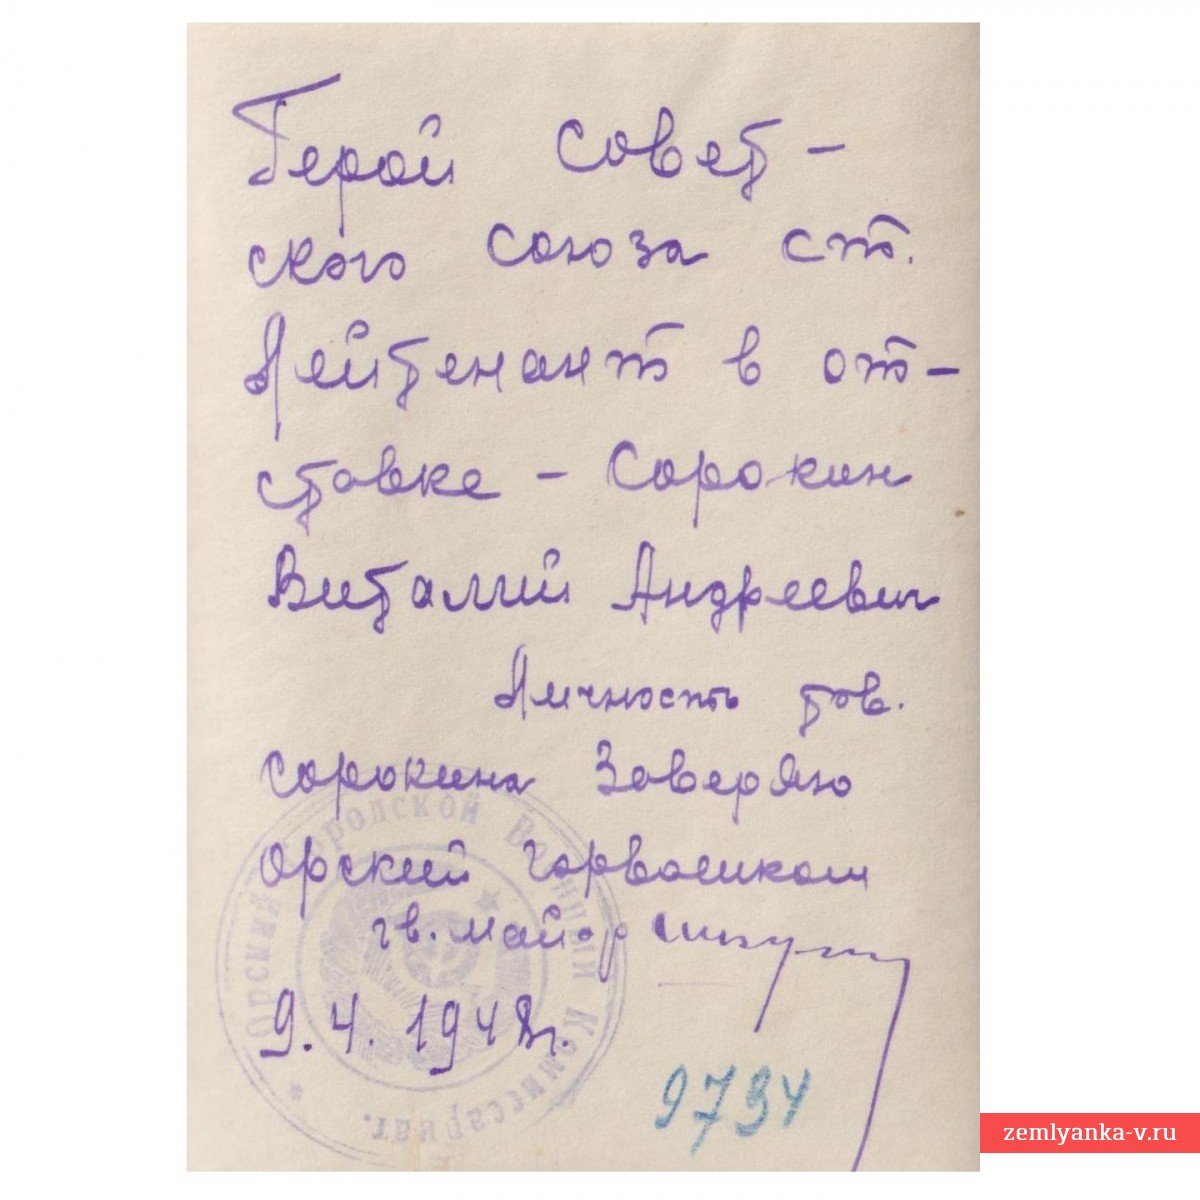 Герой Совет-
ского Союза ст.
Лейтенант в от-
ставке - Сорокин
Виталий Андреевич
Личность тов.
Сорокина Заверяю
Орский горвоенком
гв. майор
9.4.1948г.
9794
Орский Городской Военный Комиссариат.
zemlyanka-v.ru